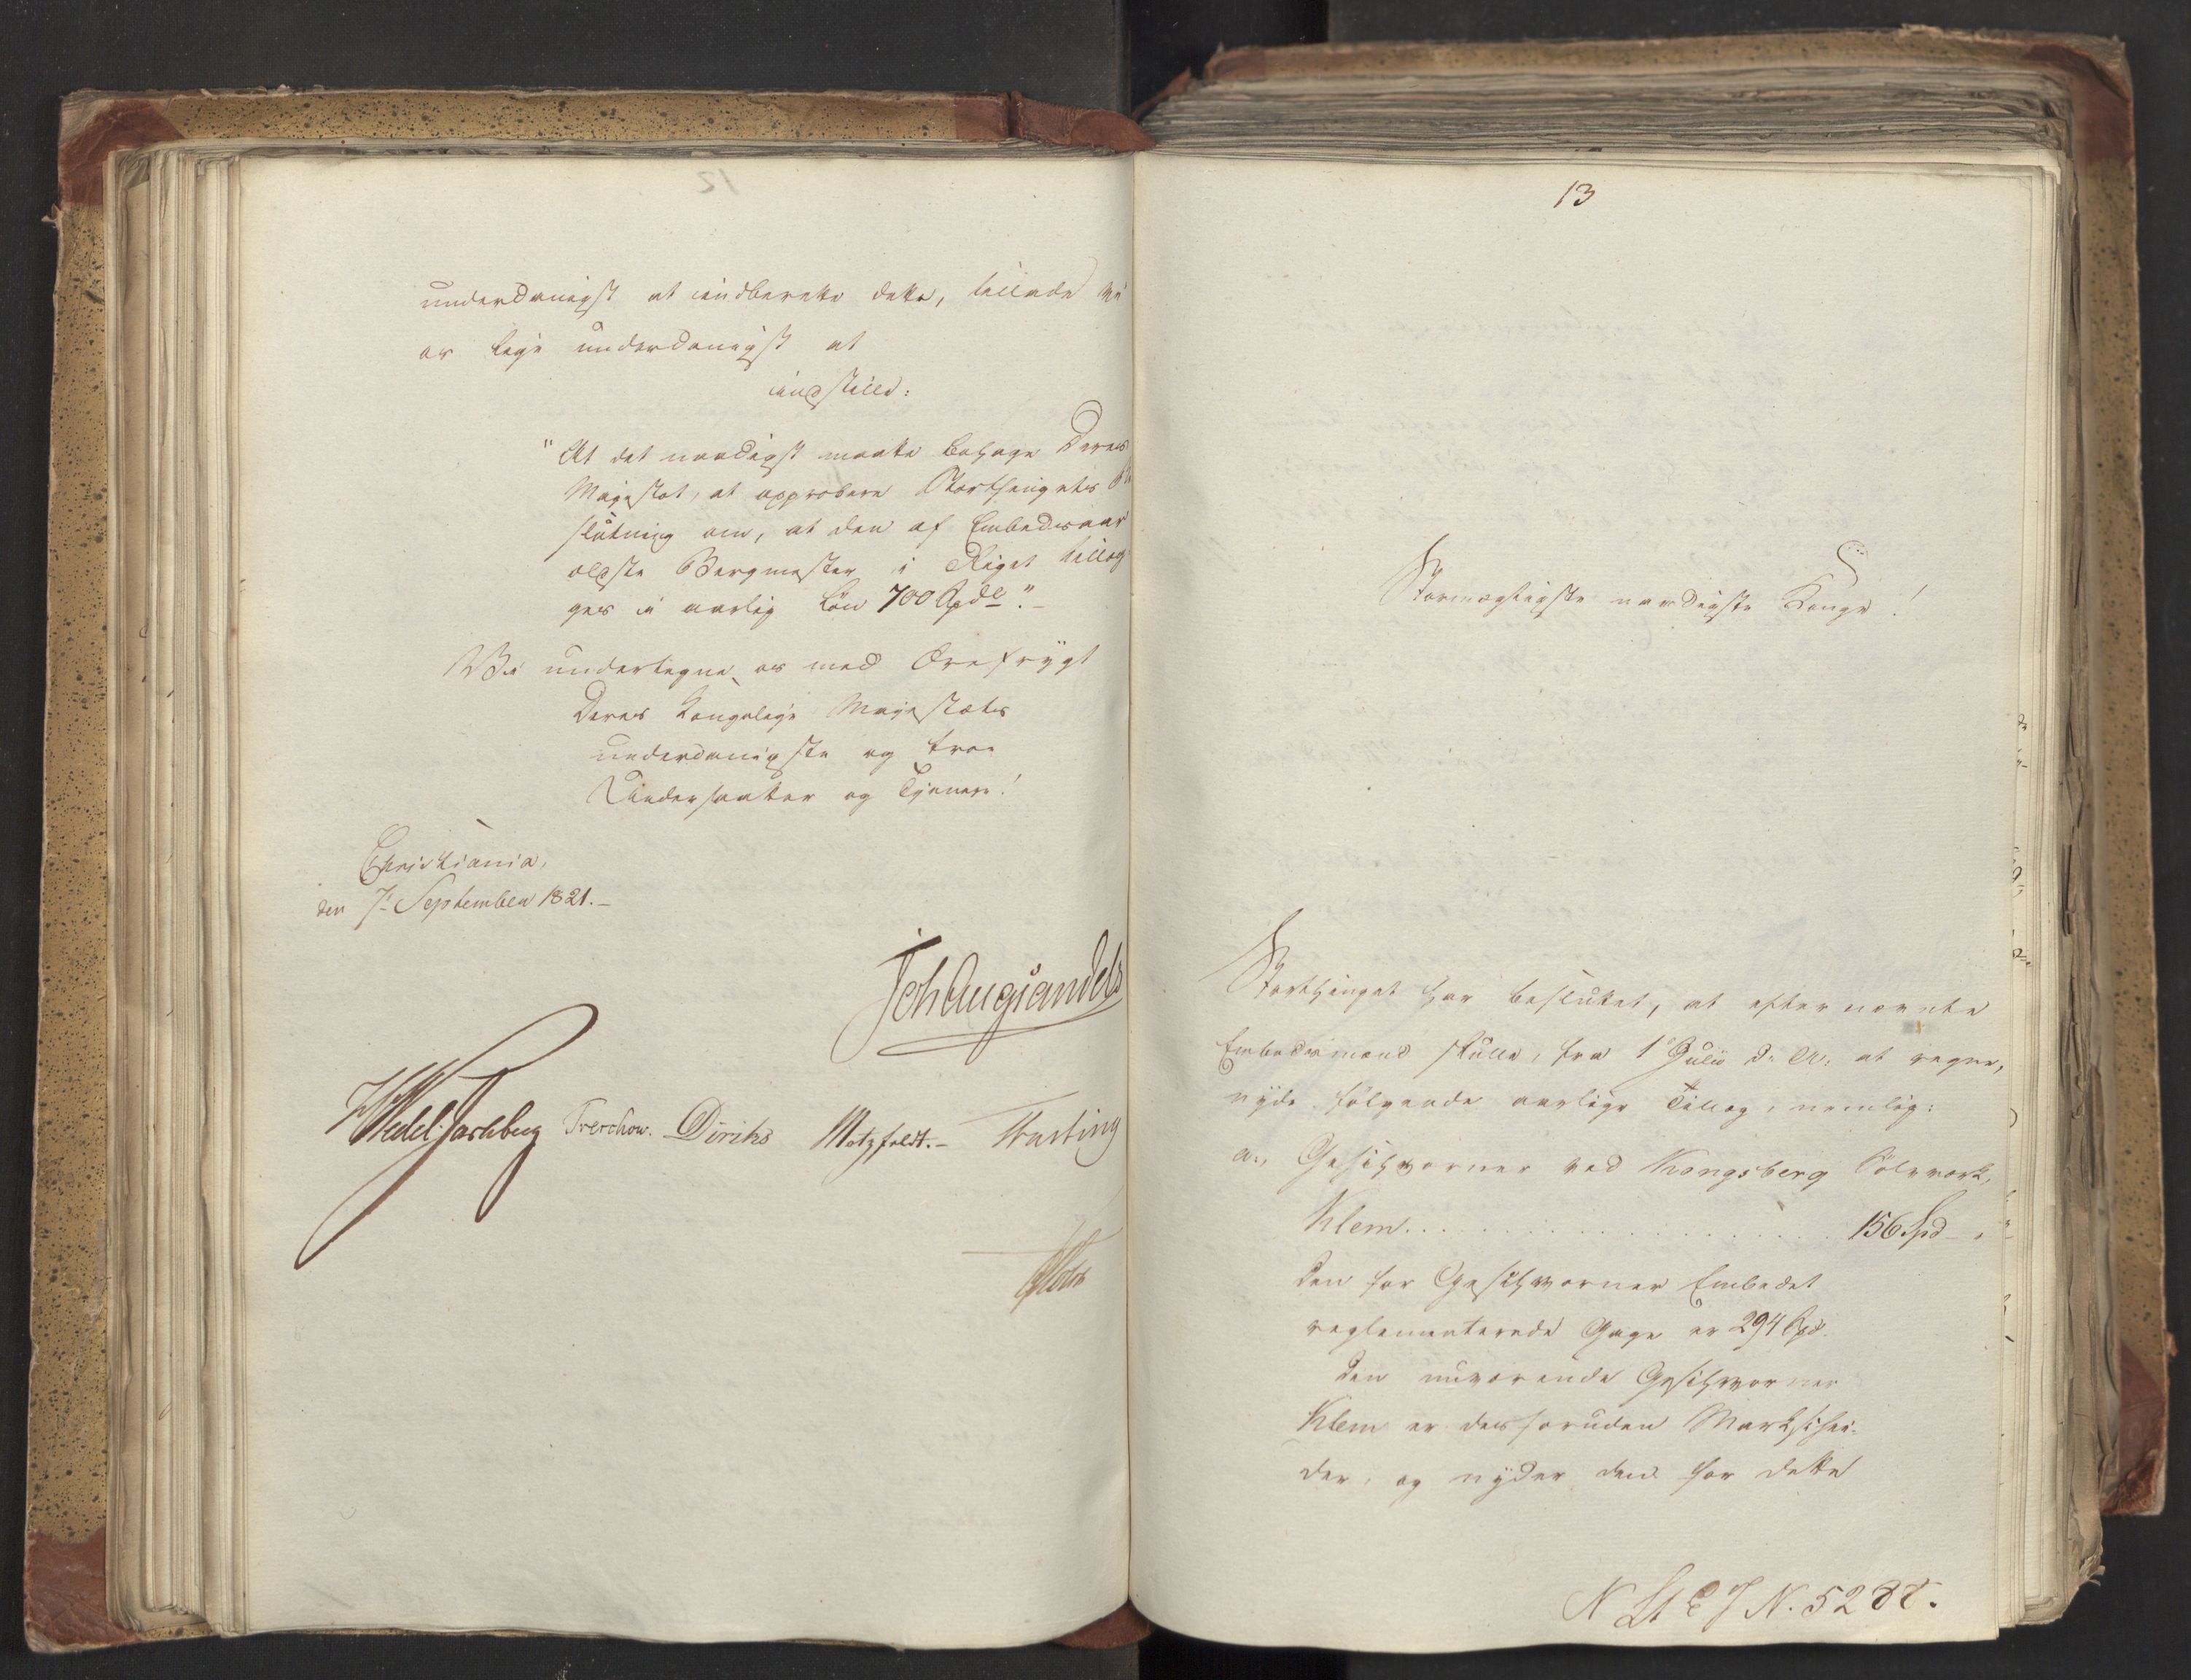 underdanigst at indberette dette, tillade vi
os lige underdanigst at
indstille:
"At det naadigst maatte behage Deres
Majestæt, at approbere Storthingets Be
slutning om, at den af Embedsaar
ældste Bergmester i Riget tillæg
ges i aarlig Løn 700 Spd."
Vi undertegne os med Ærefrygt
Deres Kongelige Majestæts
underdanigste og troe
Undersaatter og Tjenere!
Christiania,
den 7 September 1821.
Joh Aug Sandels
HWedel Jarlsberg Treschow. Diriks Motzfeldt. Fasting
Holst
13
Stormægtigste naadigste Konge!
Storthinget har besluttet, at efternævnte
Embedsmænd skulle, fra 1 Julii d. A. at regne,
nyde følgende aarlige Tillæg, nemlig:
a., Geschworner ved Kongsberg Sølvværk,
Klem . . . . . . . . . . 156 Spd
Den for Geschworner Embedet
reglementerede Gage er 294 Spd.
Den nuværende Geschworner
Klem er desforuden Markschei-
der, og nyder den for dette
N St E J N. 5288.